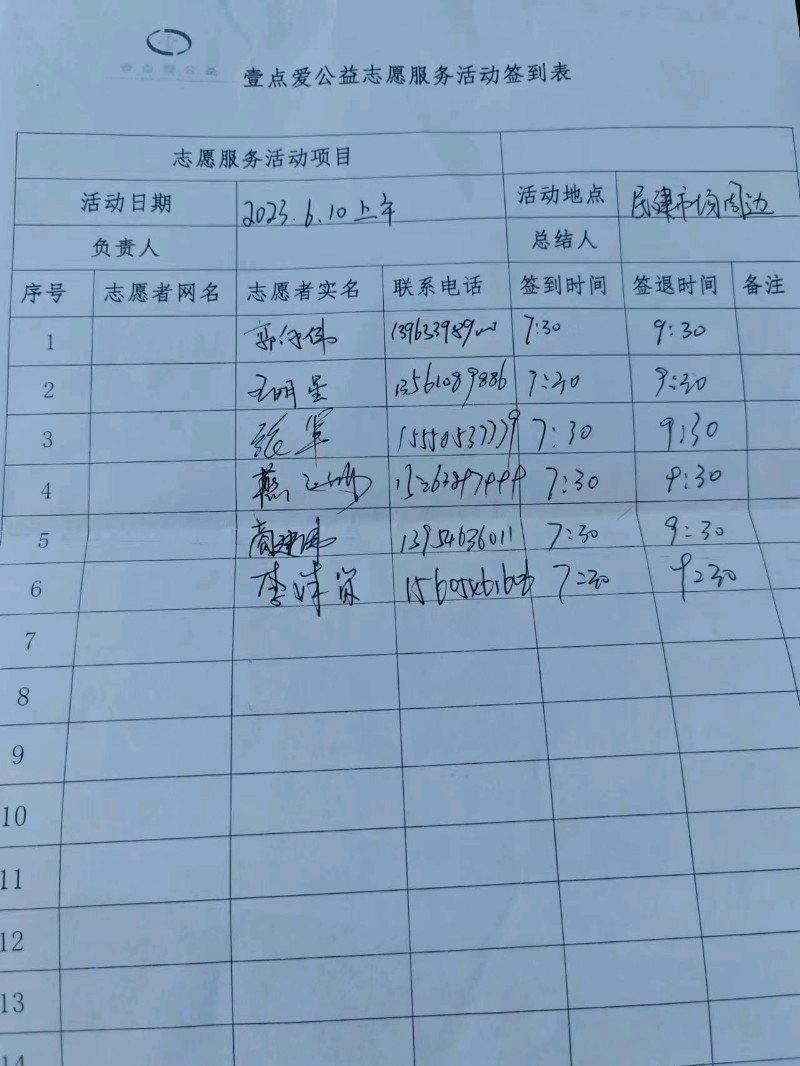 壹点爱公益
壹点爱公益志愿服务活动签到表
志愿服务活动项目
活动日期 2023.6.10上午 活动地点 民建市场周边
负责人 总结人
序号 志愿者网名 志愿者实名 联系电话 签到时间 签退时间 备注
1 7:30 9:30
2 王明星 13561089886 7:30 9:30
3 张军 15550537779 7:30 9:30
4 7:30 9:30
5 商建伟 13954636011 7:30 9:30
6 李 7:30 9:30
7
8
9
10
11
12
13
14